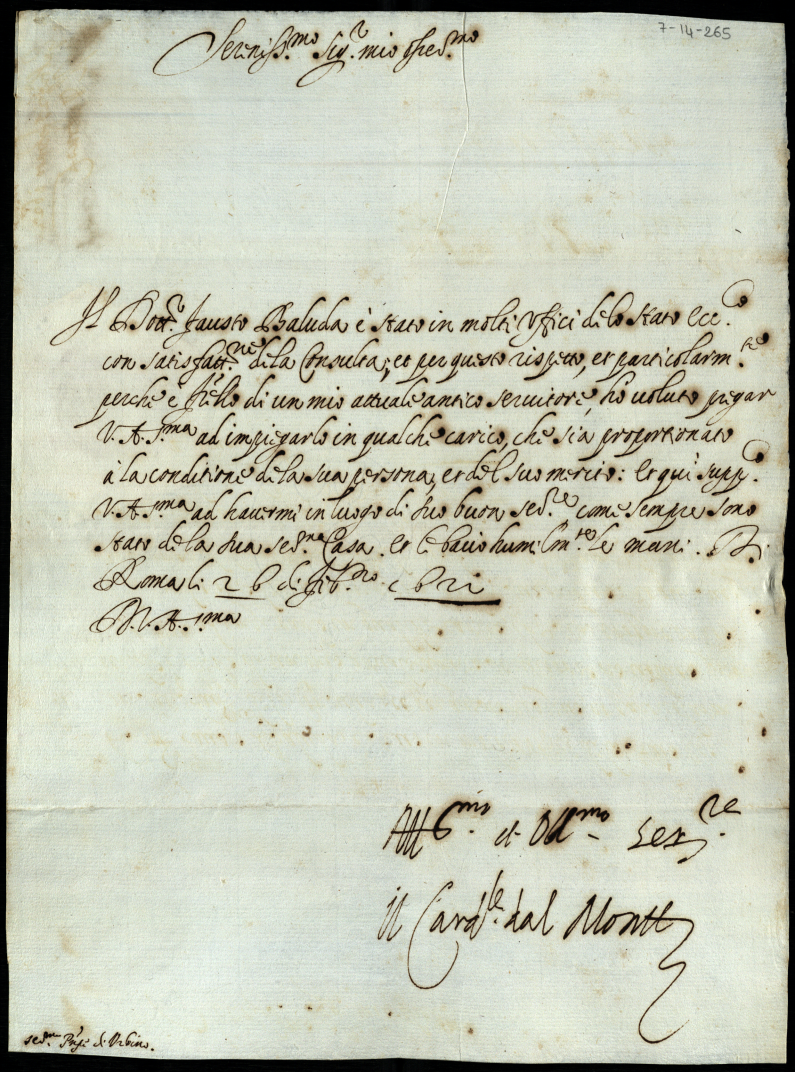 7-14-265
Sereniss.mo Sig.r mio oss.mo
Il Dott.r Fausto Paluda è stato in molti Uffici de lo Stato Ecc.co
con satisfatt.ne de la Consulta; et per questo rispetto, et particolarm.te
perche è fr̃ello di un mio attuale antico servitore, hò voluto pregar
V. A. S.ma ad impiegarlo in qualche carico, che sia proportionato
à la conditione de la sua persona, et del suo merito: Et quì supp.co
V. A. S.ma ad havermi in luogo di suo buon ser.re come sempre sono
stato de la sua ser.ma Casa. Et le bacio humilm.te le mani. Di
Roma li 26 di Feb.ro 1621
D. V. A. S.ma
Aff.mo et Obl.mo Ser.re
il Card.le dal Monte
ser.mo Prñpe di Urbino.